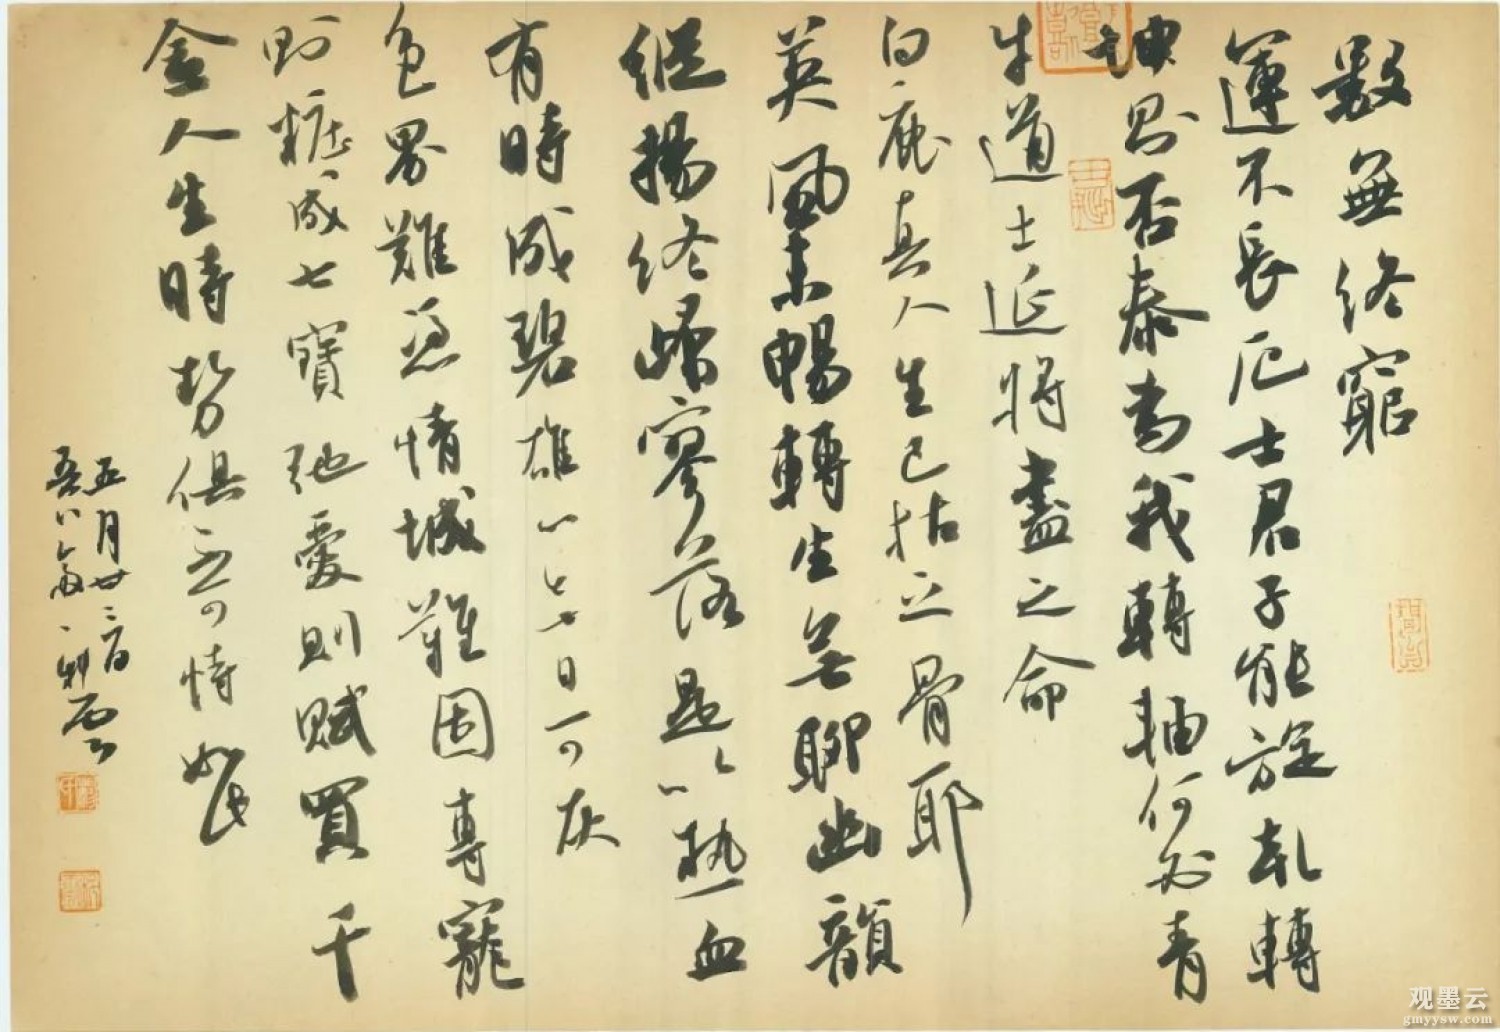 數無終窮
運不長厄士君子能旋乾轉
坤則否泰為我轉軸何必青
牛道士延將盡之命
白鹿真人生已枯之骨耶
英風未暢轉生無聊幽韻
縱揚終歸寥落是以熱血
有時成碧雄心七日可灰
色界難忍情城難固專寵
則糠成七寶弛愛則賦買千
金人生時勢俱不可恃如此
五月廿三日
吾八
觀墨云
gmyysw.com